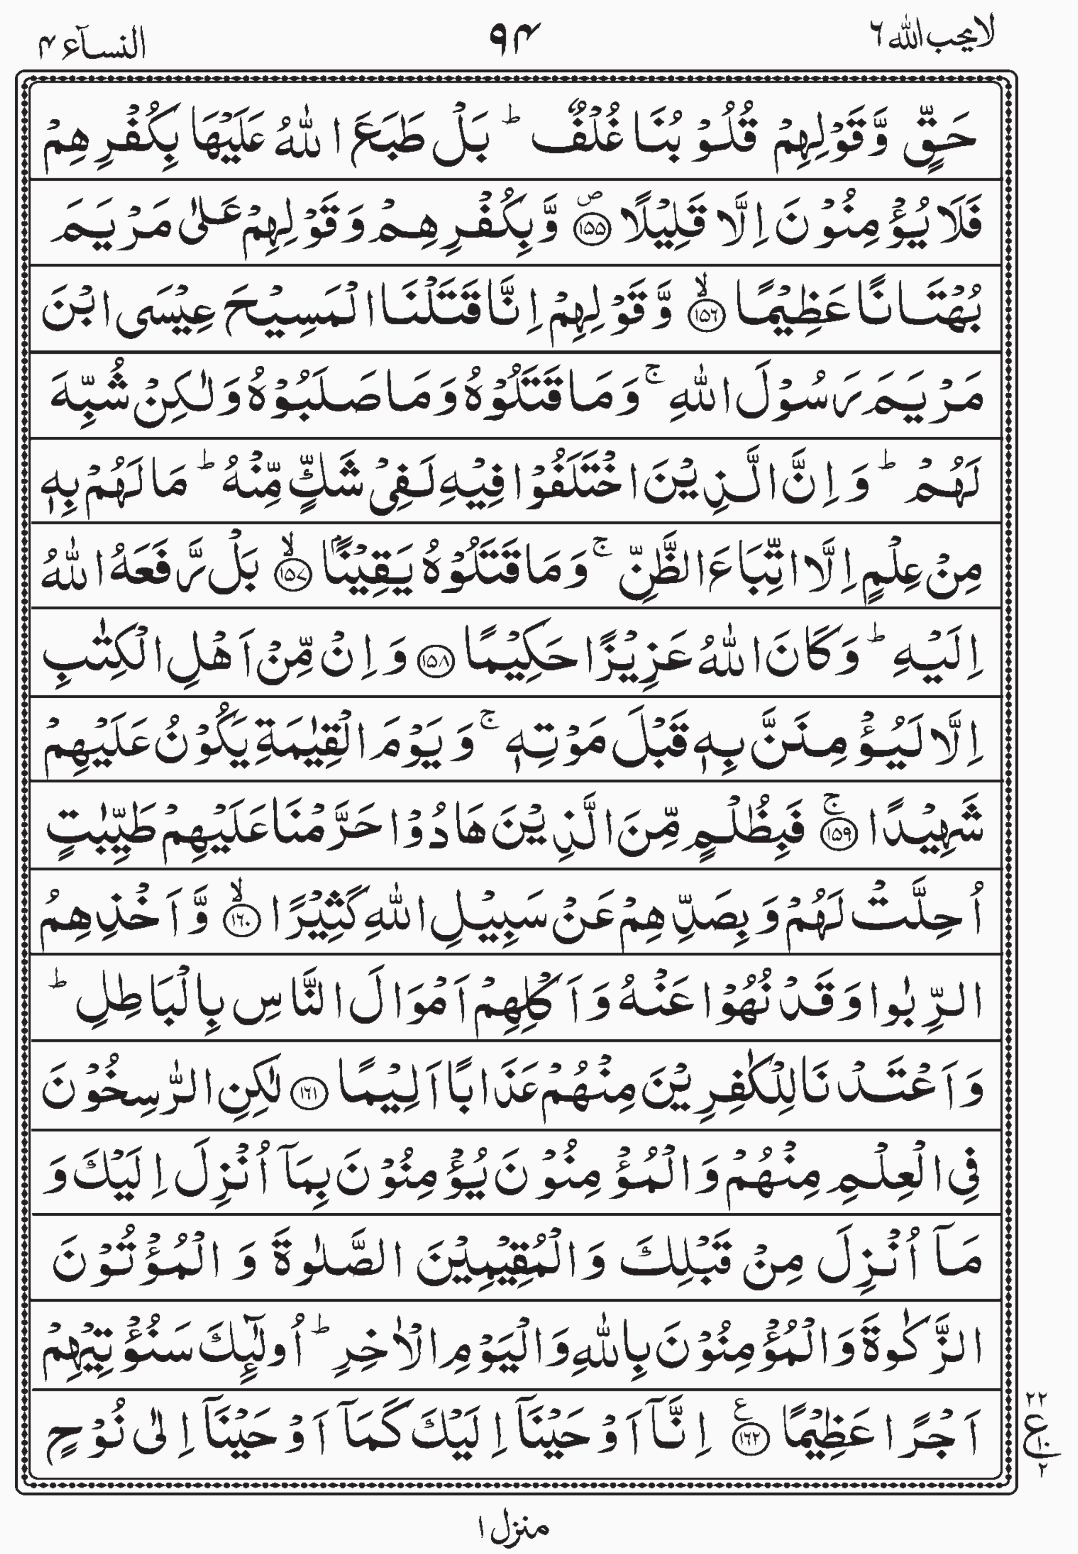 لا یحب الله ٦
٩٤
النسآء ٤
حَقٍّ وَّقَوْلِهِمْ قُلُوْبُنَا غُلْفٌ ؕ بَلْ طَبَعَ اللّٰهُ عَلَیْهَا بِكُفْرِهِمْ
فَلَا یُؤْمِنُوْنَ اِلَّا قَلِیْلًا ۪﴿۱۵۵﴾ وَّبِكُفْرِهِمْ وَقَوْلِهِمْ عَلٰی مَرْیَمَ
بُهْتَانًا عَظِیْمًا ۙ﴿۱۵۶﴾ وَّقَوْلِهِمْ اِنَّا قَتَلْنَا الْمَسِیْحَ عِیْسَی ابْنَ
مَرْیَمَ رَسُوْلَ اللّٰهِ ۚ وَمَا قَتَلُوْهُ وَمَا صَلَبُوْهُ وَلٰكِنْ شُبِّهَ
لَهُمْ ؕ وَاِنَّ الَّذِیْنَ اخْتَلَفُوْا فِیْهِ لَفِیْ شَكٍّ مِّنْهُ ؕ مَا لَهُمْ بِهٖ
مِنْ عِلْمٍ اِلَّا اتِّبَاعَ الظَّنِّ ۚ وَمَا قَتَلُوْهُ یَقِیْنًۢا ۙ﴿۱۵۷﴾ بَلْ رَّفَعَهُ اللّٰهُ
اِلَیْهِ ؕ وَكَانَ اللّٰهُ عَزِیْزًا حَكِیْمًا ﴿۱۵۸﴾ وَاِنْ مِّنْ اَهْلِ الْكِتٰبِ
اِلَّا لَیُؤْمِنَنَّ بِهٖ قَبْلَ مَوْتِهٖ ۚ وَیَوْمَ الْقِیٰمَةِ یَكُوْنُ عَلَیْهِمْ
شَهِیْدًا ۚ﴿۱۵۹﴾ فَبِظُلْمٍ مِّنَ الَّذِیْنَ هَادُوْا حَرَّمْنَا عَلَیْهِمْ طَیِّبٰتٍ
اُحِلَّتْ لَهُمْ وَبِصَدِّهِمْ عَنْ سَبِیْلِ اللّٰهِ كَثِیْرًا ۙ﴿۱۶۰﴾ وَّاَخْذِهِمُ
الرِّبٰوا وَقَدْ نُهُوْا عَنْهُ وَاَكْلِهِمْ اَمْوَالَ النَّاسِ بِالْبَاطِلِ ؕ
وَاَعْتَدْنَا لِلْكٰفِرِیْنَ مِنْهُمْ عَذَابًا اَلِیْمًا ﴿۱۶۱﴾ لٰكِنِ الرّٰسِخُوْنَ
فِی الْعِلْمِ مِنْهُمْ وَالْمُؤْمِنُوْنَ یُؤْمِنُوْنَ بِمَاۤ اُنْزِلَ اِلَیْكَ وَ
مَاۤ اُنْزِلَ مِنْ قَبْلِكَ وَالْمُقِیْمِیْنَ الصَّلٰوةَ وَالْمُؤْتُوْنَ
الزَّكٰوةَ وَالْمُؤْمِنُوْنَ بِاللّٰهِ وَالْیَوْمِ الْاٰخِرِ ؕ اُولٰٓىِٕكَ سَنُؤْتِیْهِمْ
اَجْرًا عَظِیْمًا ﴿۱۶۲﴾ع اِنَّاۤ اَوْحَیْنَاۤ اِلَیْكَ كَمَاۤ اَوْحَیْنَاۤ اِلٰی نُوْحٍ
۲۲
ع
۱۰
۲
منزل ۱